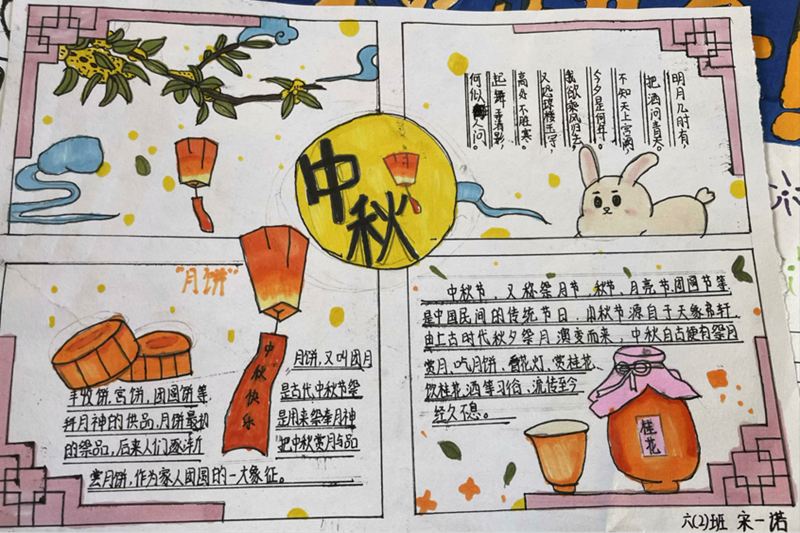 中秋
明月几时有,
把酒问青天。
不知天上宫阙,
今夕是何年。
我欲乘风归去,
又恐琼楼玉宇,
高处不胜寒。
起舞弄清影,
何似人间。
"月饼"
中秋快乐
月饼,又叫团月
丰收饼,宫饼,团圆饼等
是古代中秋节祭
月神的供品,月饼最初
是用来祭奉月神
的祭品,后来人们逐渐
把中秋赏月与品
赏月饼,作为家人团圆的一大象征。
中秋节,又称祭月节、秋节、月亮节、团圆节等
是中国民间的传统节日,中秋节源自于天象
由上古时代秋夕祭月演变而来,中秋自古便有祭月
赏月、吃月饼、看花灯、赏桂花、
饮桂花酒等习俗,流传至今
经久不息。
桂花
六(2)班 宋一诺